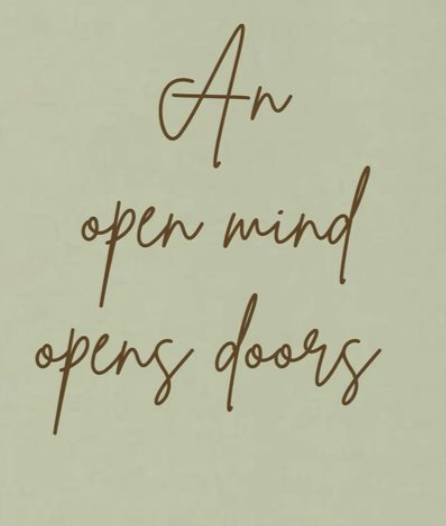 An
open mind
opens doors